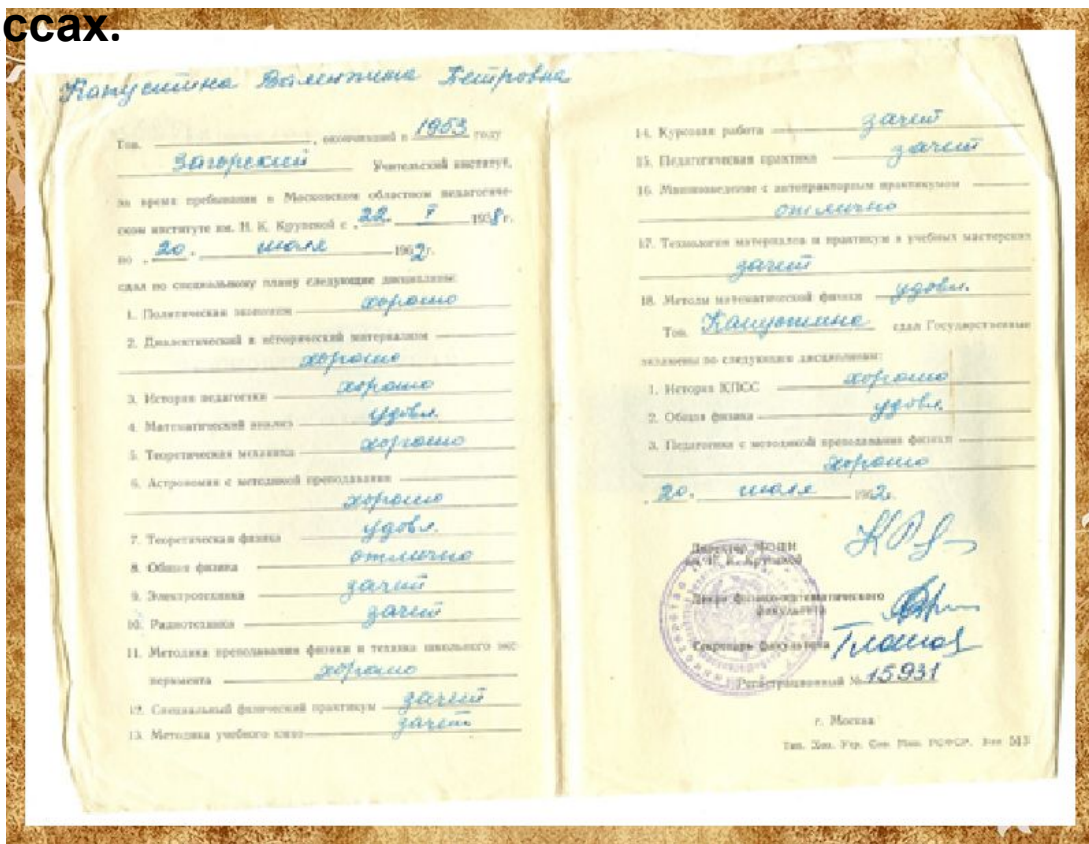 ссах.
Капустина Валентина Петровна
Тов. , окончивший в 1953 году
Загорский Учительский институт,
за время пребывания в Московском областном педагогиче-
ском институте им. Н. К. Крупской с „22. V 1958г.
по „20. июля 1962г.
сдал по специальному плану следующие дисциплины:
1. Политическая экономия хорошо
2. Диалектический и исторический материализм
хорошо
3. История педагогики хорошо
4. Математический анализ удовл.
5. Теоретическая механика хорошо
6. Астрономия с методикой преподавания
хорошо
7. Теоретическая физика удовл.
8. Общая физика отлично
9. Электротехника зачет
10. Радиотехника зачет
11. Методика преподавания физики и техника школьного экс-
перимента хорошо
12. Специальный физический практикум зачет
13. Методика учебного кино зачет
14. Курсовая работа зачет
15. Педагогическая практика зачет
16. Машиноведение с автотракторным практикумом
отлично
17. Технология материалов и практикум в учебных мастерских
зачет
18. Методы математической физики удовл.
Тов. Капустина сдал Государственные
экзамены по следующим дисциплинам:
1. История КПСС хорошо
2. Общая физика удовл.
3. Педагогика с методикой преподавания физики
хорошо
„20. июля 1962г.
Директор МОПИ
им. Н. К. Крупской
Декан физико-математического
факультета
Секретарь факультета
Регистрационный № 15931
г. Москва
Тип. Хоз. Упр. Сов. Мин. РСФСР. Зак 513